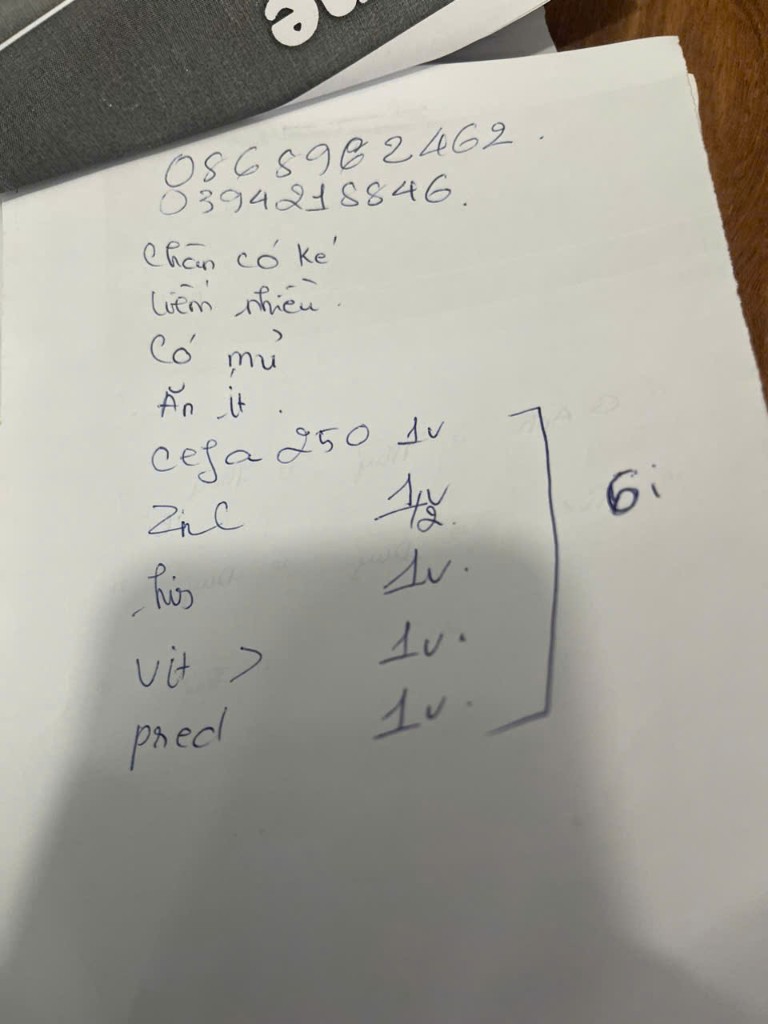 me
0868962462.
0394218846.
Chân có kẻ
liếm nhiều.
Có mủ
Ăn ít.
cefa 250 1v
Zinc 1/2v.
his 1v.
vit 1v.
pred 1v.
6i